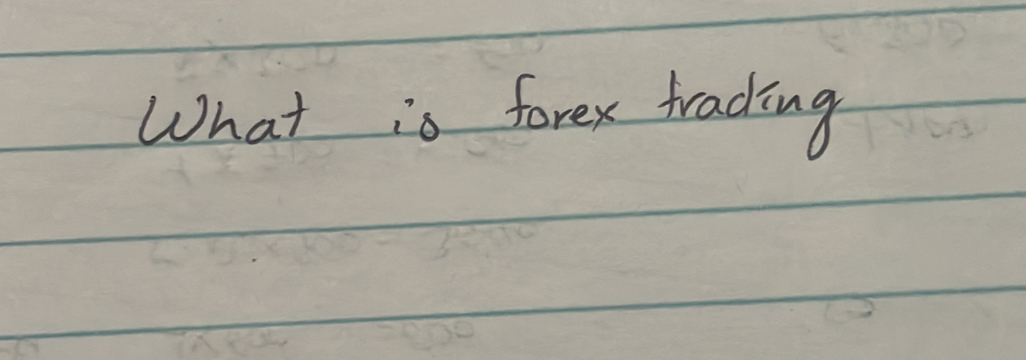 What is forex trading